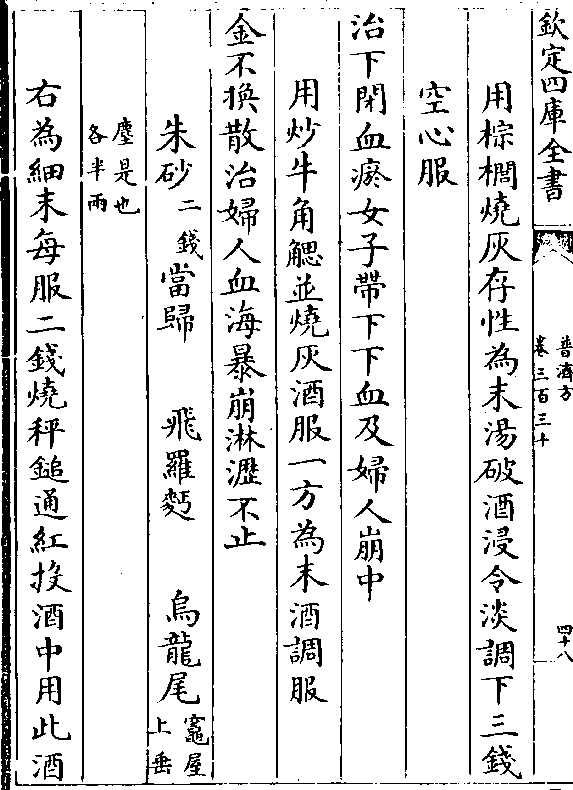 欽定四庫全書
普濟方
卷三百三十
四十八
用棕櫚燒灰存性為末湯破酒浸令淡調下三錢
空心服
治下閉血瘀女子帶下下血及婦人崩中
用炒牛角䚡並燒灰酒服一方為末酒調服
金不換散治婦人血海暴崩淋瀝不止
朱砂二錢當歸 飛羅麪 烏龍尾竈屋上垂
塵是也各半兩
右為細末每服二錢燒秤鎚通紅投酒中用此酒